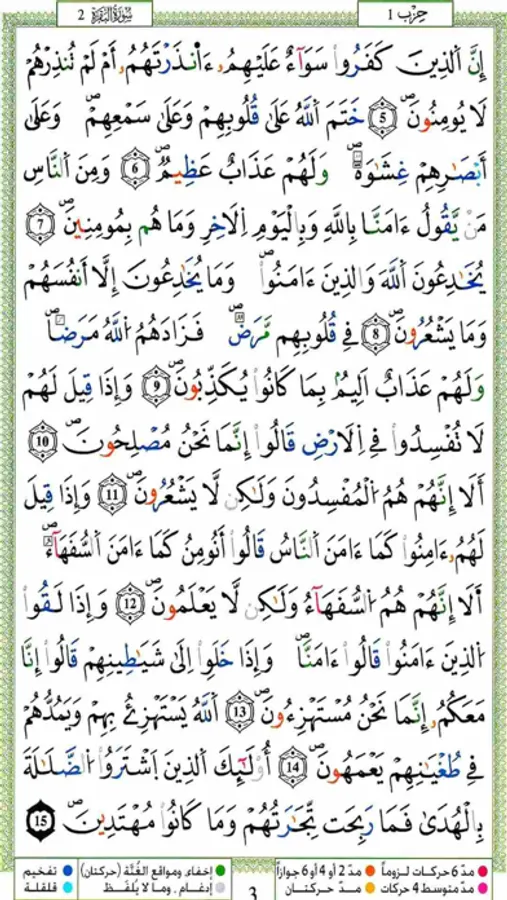 حِزْب 1
سُورَةُ البَقَرَة 2
إِنَّ اَ۬لذِينَ كَفَرُواْ سَوَآءٌ عَلَيْهِمُۥٓ ءَآنذَرْتَهُمُۥٓ أَمْ لَمْ تُنذِرْهُمْ
لَا يُومِنُونَۖ 5 خَتَمَ اَ۬للَّهُ عَلَىٰ قُلُوبِهِمْ وَعَلَىٰ سَمْعِهِمْۖ وَعَلَىٰ
أَبْصَٰرِهِمْ غِشَٰوَةٌۖ وَلَهُمْ عَذَابٌ عَظِيمٌۖ 6 وَمِنَ اَ۬لنَّاسِ
مَنْ يَّقُولُ ءَامَنَّا بِاللَّهِ وَبِالْيَوْمِ اِ۬لَاخِرِ وَمَا هُم بِمُومِنِينَۖ 7
يُخَٰدِعُونَ اَ۬للَّهَ وَالذِينَ ءَامَنُواْۖ وَمَا يُخَٰدِعُونَ إِلَّآ أَنفُسَهُمْ
وَمَا يَشْعُرُونَۖ 8 فِے قُلُوبِهِم مَّرَضٞۖ فَزَادَهُمُ اُ۬للَّهُ مَرَضاٗۖ
وَلَهُمْ عَذَابٌ اَلِيمُۢ بِمَا كَانُواْ يُكَذِّبُونَۖ 9 وَإِذَا قِيلَ لَهُمْ
لَا تُفْسِدُواْ فِے اِ۬لَارْضِ قَالُوٓاْ إِنَّمَا نَحْنُ مُصْلِحُونَۖ 10
أَلَآ إِنَّهُمْ هُمُ اُ۬لْمُفْسِدُونَ وَلَٰكِن لَّا يَشْعُرُونَۖ 11 وَإِذَا قِيلَ
لَهُمُۥٓ ءَامِنُواْ كَمَآ ءَامَنَ اَ۬لنَّاسُ قَالُوٓاْ أَنُومِنُ كَمَآ ءَامَنَ اَ۬لسُّفَهَآءُۖ
أَلَآ إِنَّهُمْ هُمُ اُ۬لسُّفَهَآءُ وَلَٰكِن لَّا يَعْلَمُونَۖ 12 وَإِذَا لَقُواْ
اُ۬لذِينَ ءَامَنُواْ قَالُوٓاْ ءَامَنَّاۖ وَإِذَا خَلَوِاْ اِلَىٰ شَيَٰطِينِهِمْ قَالُوٓاْ إِنَّا
مَعَكُمُۥٓ إِنَّمَا نَحْنُ مُسْتَهْزِءُونَۖ 13 اَ۬للَّهُ يَسْتَهْزِئُ بِهِمْ وَيَمُدُّهُمْ
فِے طُغْيَٰنِهِمْ يَعْمَهُونَۖ 14 أُوْلَٰٓئِكَ اَ۬لذِينَ اَ۪شْتَرَوُاْ اُ۬لضَّلَٰلَةَ
بِالْهُدَىٰ فَمَا رَبِحَت تِّجَٰرَتُهُمْ وَمَا كَانُواْ مُهْتَدِينَۖ 15
مدّ 6 حركات لزوماً مدّ 2 أو 4 أو 6 جوازاً إخفاء ومواقع الغُنَّة (حركتان) تفخيم
مدّ متوسط 4 حركات مدّ حركتان إدغام ، وما لا يُلفَظ قلقلة
3